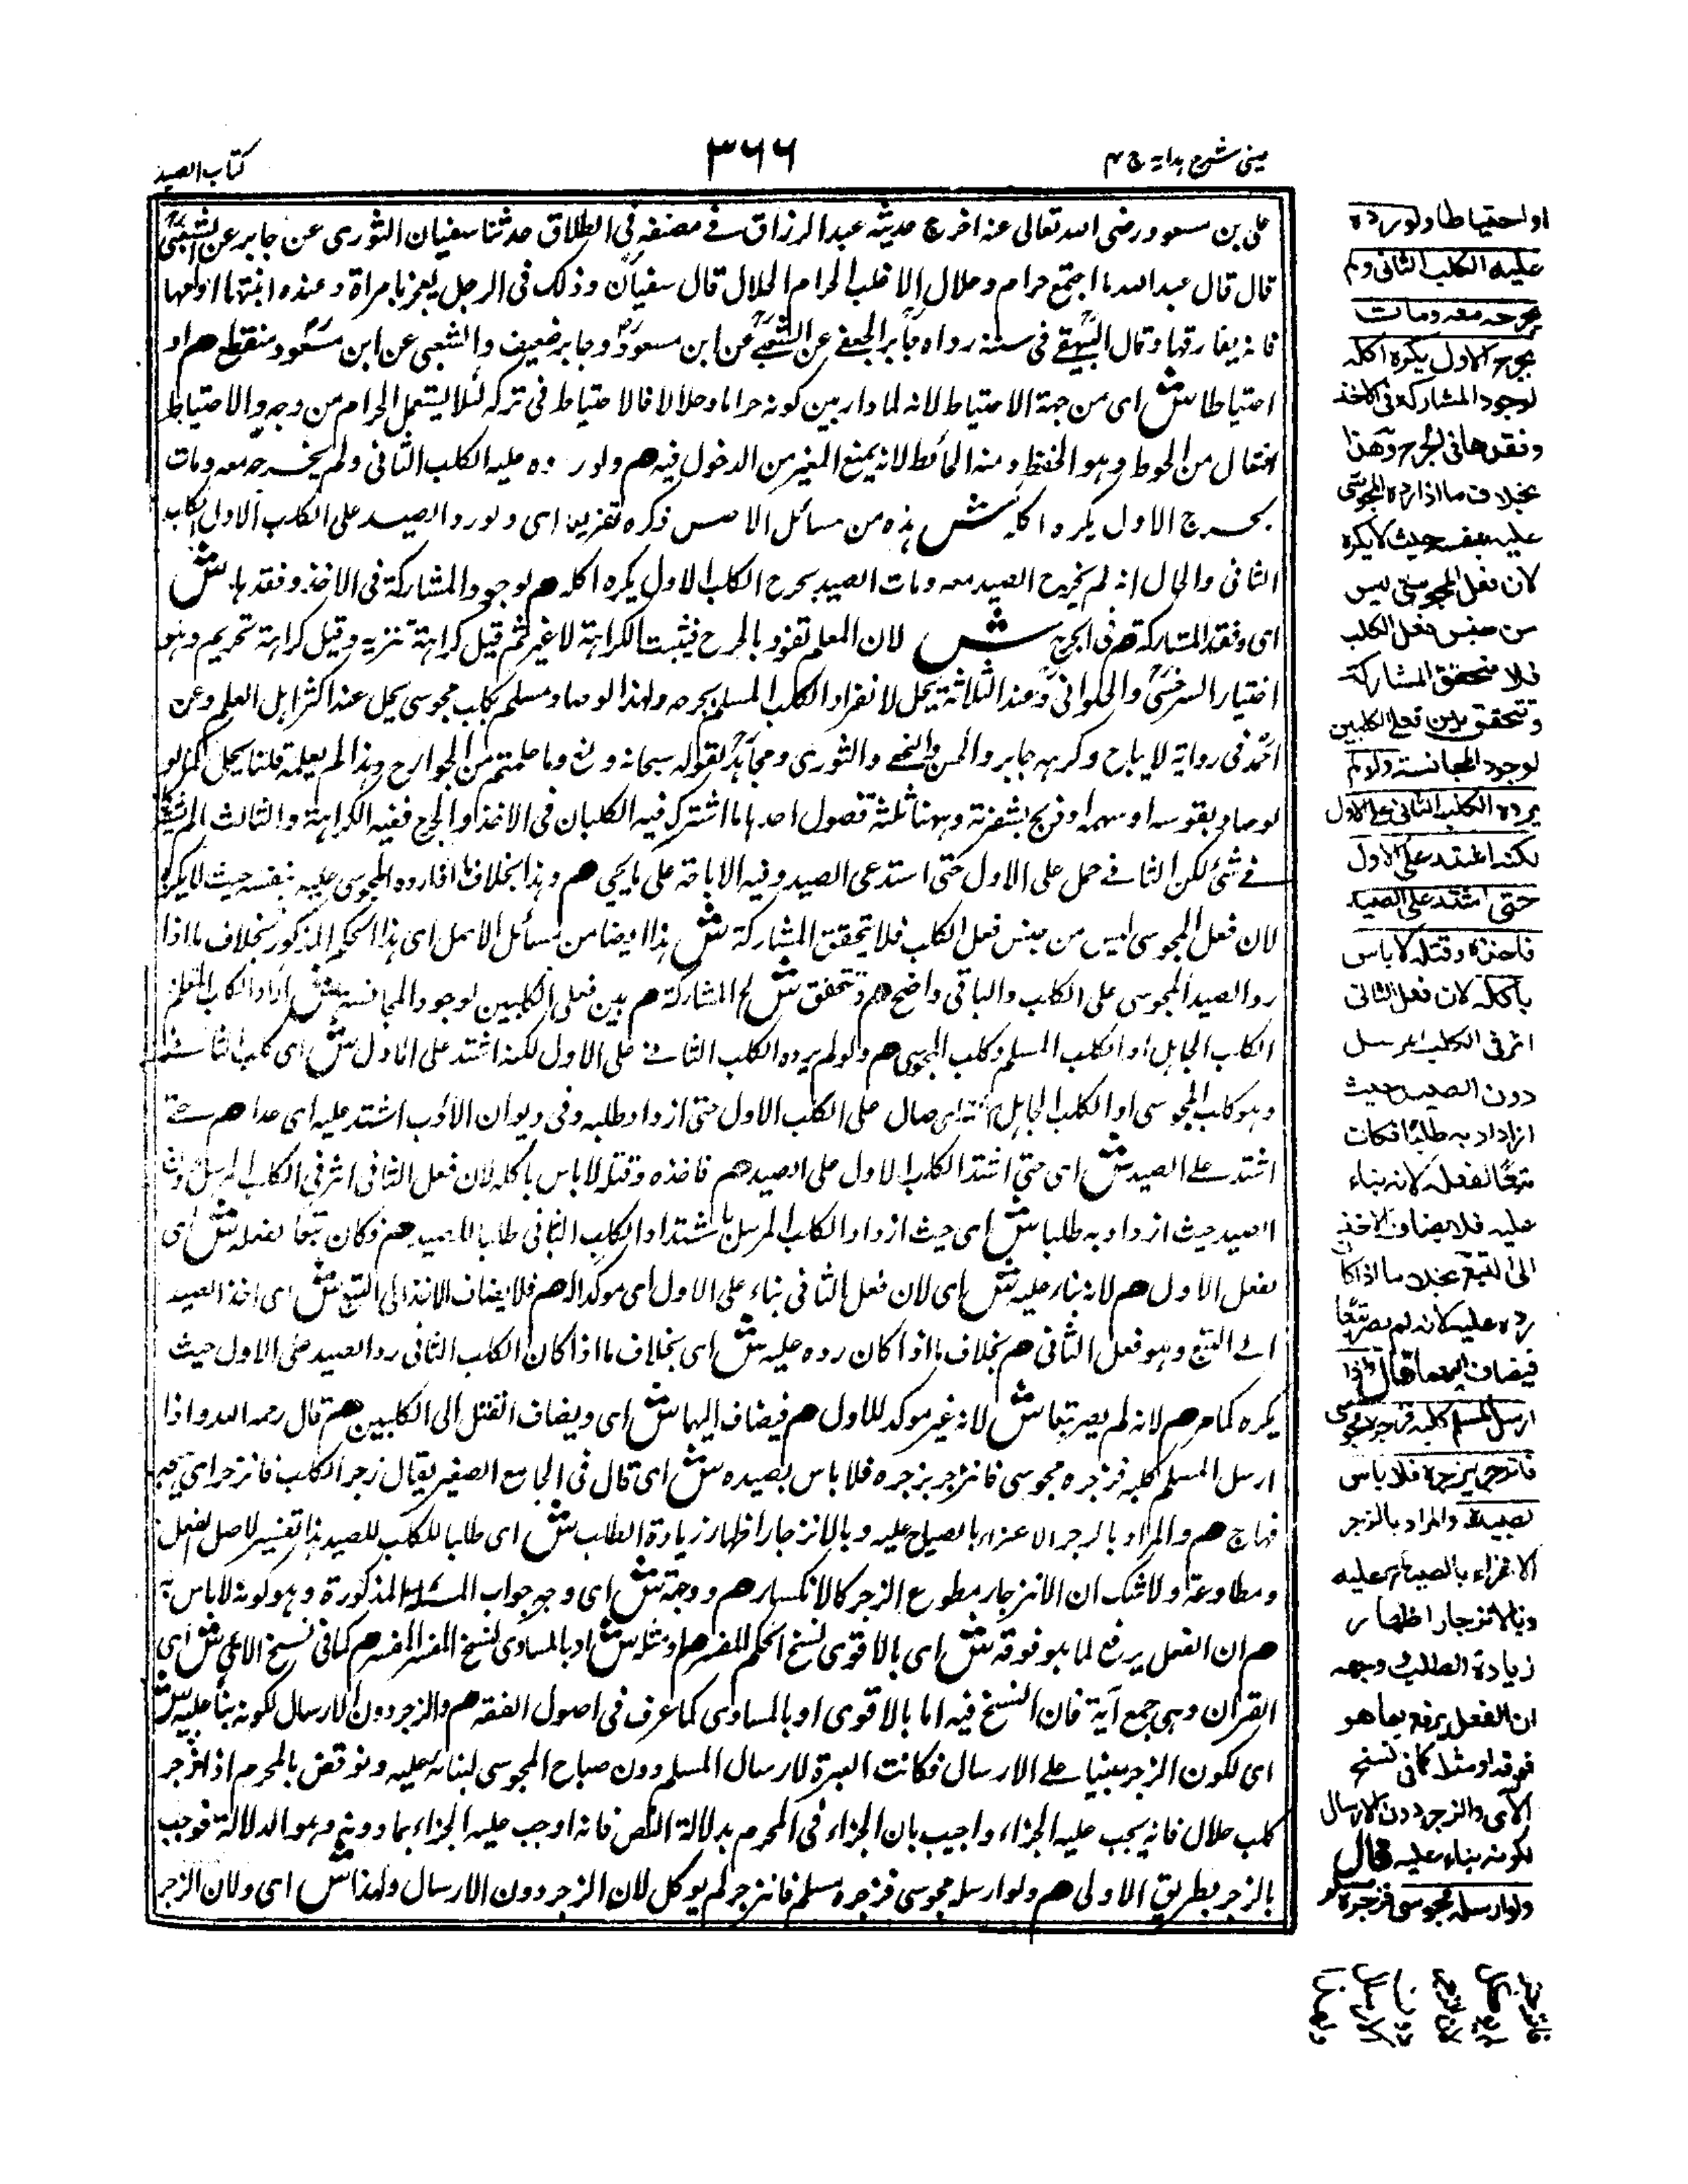 عینی شرح ہدایہ ج ۴
۳۶۶
کتاب الصید
علی بن مسعود رضی اللہ تعالی عنہ اخرج حدیثہ عبد الرزاق فے مصنفہ فی الطلاق حدثنا سفیان الثوری عن جابر عن الشعبی
قال قال عبد اللہ ما اجتمع حرام وحلال الا غلب الحرام الحلال قال سفیان وذلک فی الرجل یفجر بامراة وعنده ابنتہا او امہا
فانہ یفارقہا وقال البیہقے فی سننہ رواه جابر الجعفے عن الشعبے عن ابن مسعود وجابر ضعیف والشعبی عن ابن مسعود منقطع هم او
احتیاطا ش ای من جہة الاحتیاط لانہ لما دار بین کونہ حراما وحلالا فالاحتیاط فی ترکہ لئلا یستعمل الحرام من وجہ والاحتیاط
افتعال من الحوط وہو الحفظ ومنہ الحائط لانہ یمنع الغیر من الدخول فیہ هم ولو رده علیہ الکلب الثانی ولم یجرحہ معہ ومات
بجرح الاول یکره اکلہ ش ہذه من مسائل الاصل ذکره تفریعا ای ولو رد الصید علی الکلب الاول الکلب
الثانی والحال انہ لم یجرح الصید معہ ومات الصید بجرح الکلب الاول یکره اکلہ هم لوجود المشارکة فی الاخذ وفقدہا ش
ای وفقد المشارکة هم فی الجرح ش لان المعلم تفرد بالجرح فیثبت الکراہة لا غیر ثم قیل کراہة تنزیہ وقیل کراہة تحریم وہو
اختیار السرخسی والحلوانی وعند الثلاثة یحل لانفراد الکلب المسلم بجرحہ ولہذا لو صاد مسلم بکلب مجوسی یحل عند اکثر اہل العلم وعن
احمد فی روایة لا یباح وکرہہ جابر والحسن والنخعے والثوری ومجاہد لقولہ سبحانہ وتع وما علمتم من الجوارح وہذا لم یعلمہ قلنا یحل کما لو
لو صاد بقوسہ او سہمہ او ذبح بشفرتہ وہہنا ثلثة فصول احدہا ما اشترک فیہ الکلبان فی الاخذ او الجرح ففیہ الکراہة والثالث لم یشترکا
فے شئ لکن الثانے حمل علی الاول حتی استدعی الصید وفیہ الاباحة علی ما یجئ هم وہذا بخلاف ما اذا رده المجوسی علیہ بنفسہ حیث لا یکره
لان فعل المجوسی لیس من جنس فعل الکلب فلا یتحقق المشارکة ش ہذا ایضا من مسائل الاصل ای ہذا الحکم المذکور بخلاف ما اذا
رد الصید المجوسی علی الکلب والباقی واضح هم وتتحقق ش ای المشارکة هم بین فعلی الکلبین لوجود المجانسة ش اراد الکلب المعلم
الکلب الجاہل او الکلب المسلم وکلب المجوسی هم ولو لم یرده الکلب الثانے علی الاول لکنہ اشتد علی الاول ش ای کلب الثانے
وہو کلب المجوسی او الکلب الجاہل ای صال علی الکلب الاول حتی ازداد طلبہ وفی دیوان الادب اشتد علیہ ای عدا هم حتے
اشتد علے الصید ش ای حتی اشتد الکلب الاول علی الصید هم فاخذه وقتلہ لا باس باکلہ لان فعل الثانی اثر فی الکلب المرسل دون
الصید حیث ازداد بہ طلبا ش ای حیث ازداد الکلب المرسل باشتداد الکلب الثانی طلبا للصید هم فکان تبعا لفعلہ ش ای
لفعل الاول هم لانہ بناء علیہ ش ای لان فعل الثانی بناء علی الاول ای موکدا لہ هم فلا یضاف الاخذ الی التبع ش ای اخذ الصید
الے التبع وہو فعل الثانی هم بخلاف ما اذا کان رده علیہ ش ای بخلاف ما اذا کان الکلب الثانی رد الصید علی الاول حیث
یکره کما مر هم لانہ لم یصر تبعا ش لانہ غیر موکد للاول هم فیضاف الیہما ش ای ویضاف القتل الی الکلبین هم قال رحمہ اللہ واذا
ارسل المسلم کلبہ فزجره مجوسی فانزجر بزجره فلا باس بصیده ش ای قال فی الجامع الصغیر یقال زجر الکلب فانزجر ای ہیجہ
فہاج هم والمراد بالزجر الاغراء بالصیاح علیہ وبالانزجار اظہار زیادة الطلب ش ای طلبا للکلب للصید ہذا تفسیر لاصل الفعل
ومطاوعہ ولا شک ان الانزجار مطوع الزجر کالانکسار هم ووجہہ ش ای وجہ جواب المسئلة المذکورة وہو کونہ لا باس بہ
هم ان الفعل یرفع لما ہو فوقہ ش ای بالاقوی نسخ الحکم للمفسر هم او مثلہ ش او بالمساوی لنسخ المفسر المفسر هم کما فی نسخ الآی ش ای
القرآن وہی جمع آیة فان النسخ فیہ اما بالاقوی او بالمساوی کما عرف فی اصول الفقہ هم والزجر دون الارسال لکونہ بناء علیہ ش
ای لکون الزجر مبنیا علے الارسال فکانت العبرة لارسال المسلم دون صیاح المجوسی لبنائہ علیہ ونوقض بالمحرم اذا زجر
کلب حلال فانہ یجب علیہ الجزاء واجیب بان الجزاء فی المحرم بدلالة النص فانہ اوجب علیہ الجزاء بما دونہ وہو الدلالة فوجب
بالزجر بطریق الاولی هم ولو ارسلہ مجوسی فزجره مسلم فانزجر لم یوکل لان الزجر دون الارسال ولہذا ش ای ولان الزجر
او احتیاطا ولو رده
علیه الکلب الثانی ولم
یجرحه معه ومات
بجرح الاول یکره اکله
لوجود المشارکة فی الاخذ
وفقدها فی الجرح وهذا
بخلاف ما اذا رده المجوسی
علیه بنفسه حیث لا یکره
لان فعل المجوسی لیس
من جنس فعل الکلب
فلا تتحقق المشارکة
وتتحقق بین فعلی الکلبین
لوجود المجانسة ولو لم
یرده الکلب الثانی علی الاول
لکنه اشتد علی الاول
حتی اشتد علی الصید
فاخذه وقتله لا باس
باکله لان فعل الثانی
اثر فی الکلب المرسل
دون الصید حیث
ازداد به طلبا فکان
تبعا لفعله لانه بناء
علیه فلا یضاف الاخذ
الی التبع بخلاف ما اذا کان
رده علیه لانه لم یصر تبعا
فیضاف الیهما قال واذا
ارسل المسلم کلبه فزجره مجوسی
فانزجر بزجره فلا باس
بصیده والمراد بالزجر
الاغراء بالصیاح علیه
وبالانزجار اظهار
زیادة الطلب وجهه
ان الفعل یرفع بما هو
فوقه او مثله کما فی نسخ
الآی والزجر دون الارسال
لکونه بناء علیه قال
ولو ارسله مجوسی فزجره مسلم